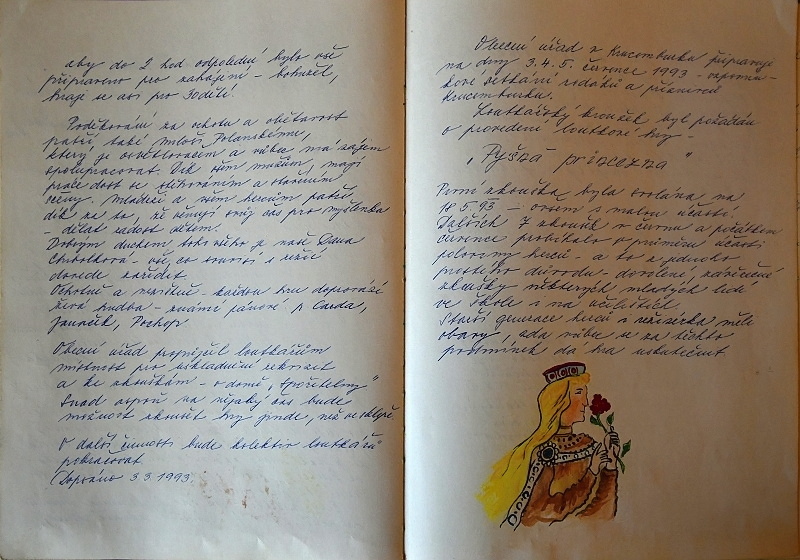 aby do 2 hod. odpolední bylo vše
připraveno pro zahájení - bohužel,
hraje se asi pro 30 dětí.
Poděkování za ochotu a obětavost
patří také Miloši Polanskému,
který je osvětlovačem a vůbec má zájem
spolupracovat. Dík všem mužům, mají
práce dost se stěhováním a stavěním
scény. Mládeži a všem hercům patří
dík za to, že věnují svůj čas pro myšlenku
- dělat radost dětem.
Dobrým duchem toho všeho je naše Dana
- vše, co souvisí s režií
dovede zařídit.
Ochotně a nezištně - každou hru doprovází
živá hudba - známí pánové p. Carda,
Janáček, Pochop.
Obecní úřad propůjčil loutkářům
místnost pro uskladnění rekvizit
a ke zkouškám - v domě "Spořitelny"
Snad aspoň na nějaký čas bude
možnost zkoušet hry jinde, než ve sklepě.
V další činnosti bude kolektiv loutkářů
pokračovat.
Dopsáno 3.3.1993.
Obecní úřad z Krucemburku připravuje
na dny 3. 4. 5. července 1993 -
kové setkání rodáků a příznivců
Krucemburku.
Loutkářský kroužek byl požádán
o provedení loutkové hry -
„Pyšná princezna"
První zkouška byla svolána na
18.5.93 - ovšem s malou účastí.
Dalších 7 zkoušek v červnu a počátkem
července probíhalo v průměru účasti
poloviny herců - a to z jednoho
prostého důvodu - dovolené, závěrečné
zkoušky některých mladých lidí
ve škole i na učilištích.
Starší generace herců i režisérka měli
obavy, zda vůbec se za těchto
podmínek dá hra uskutečnit